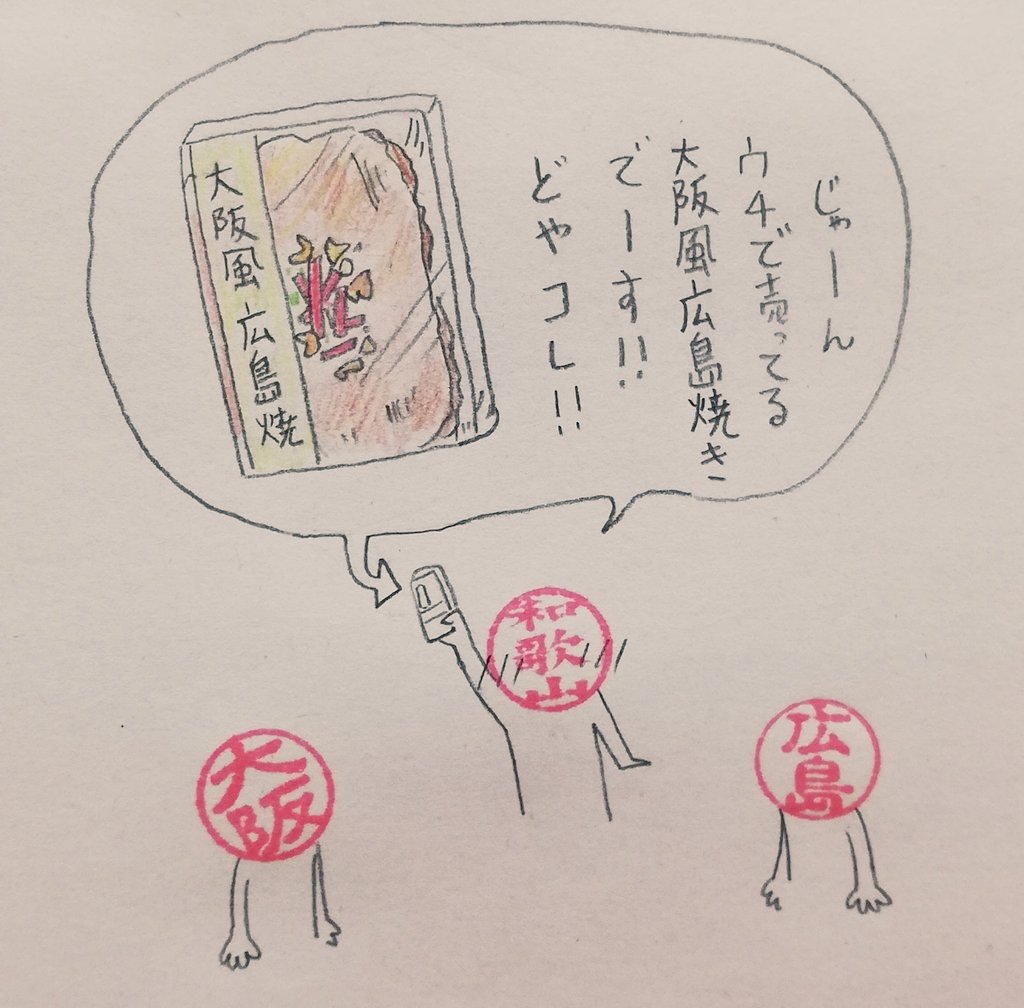 じゃーん
ウチで売ってる
大阪風広島焼き
でーす!!
どやコレ!!
大阪風広島焼
和歌山
大阪
広島